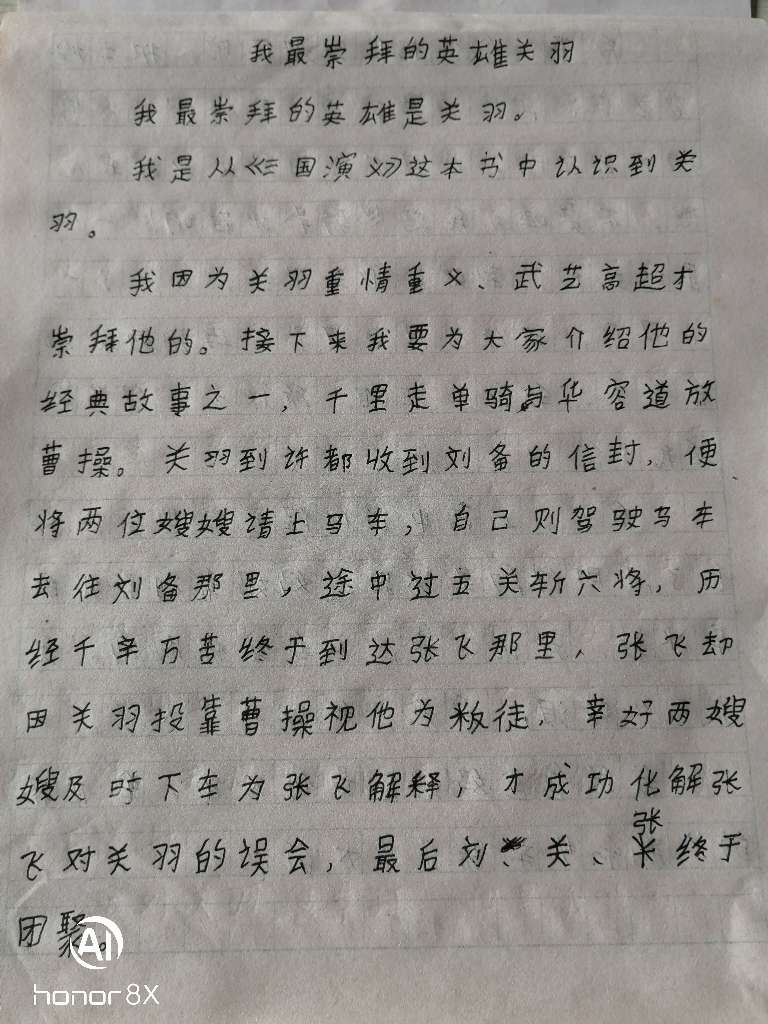 我最崇拜的英雄关羽
我最崇拜的英雄是关羽。
我是从《三国演义》这本书中认识到关
羽。
我因为关羽重情重义、武艺高超才
崇拜他的。接下来我要为大家介绍他的
经典故事之一,千里走单骑与华容道放
曹操。关羽到许都收到刘备的信封,便
将两位嫂嫂请上马车,自己则驾驶马车
去往刘备那里,途中过五关斩六将,历
经千辛万苦终于到达张飞那里,张飞却
因关羽投靠曹操视他为叛徒,幸好两嫂
嫂及时下车为张飞解释,才成功化解张
飞对关羽的误会,最后刘、关、张终于
团聚。
AI
honor 8X